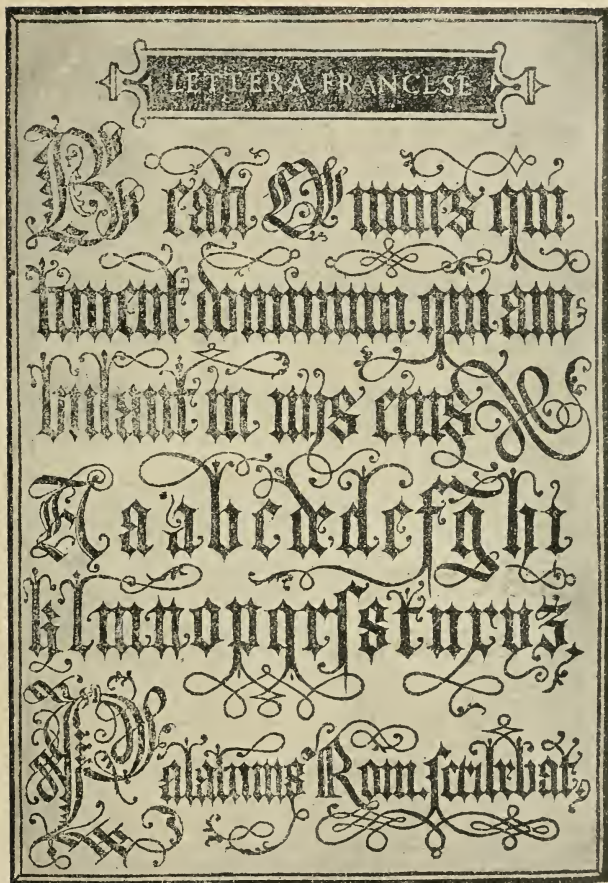 LETTERA FRANCESE
Beati Omnes qui
timent dominum qui am
bulant in uijs eius
A a a b c d e d e f g h i
k l m n o p q r ſ s t u x v z
Palatinus Rom. ſcribebat